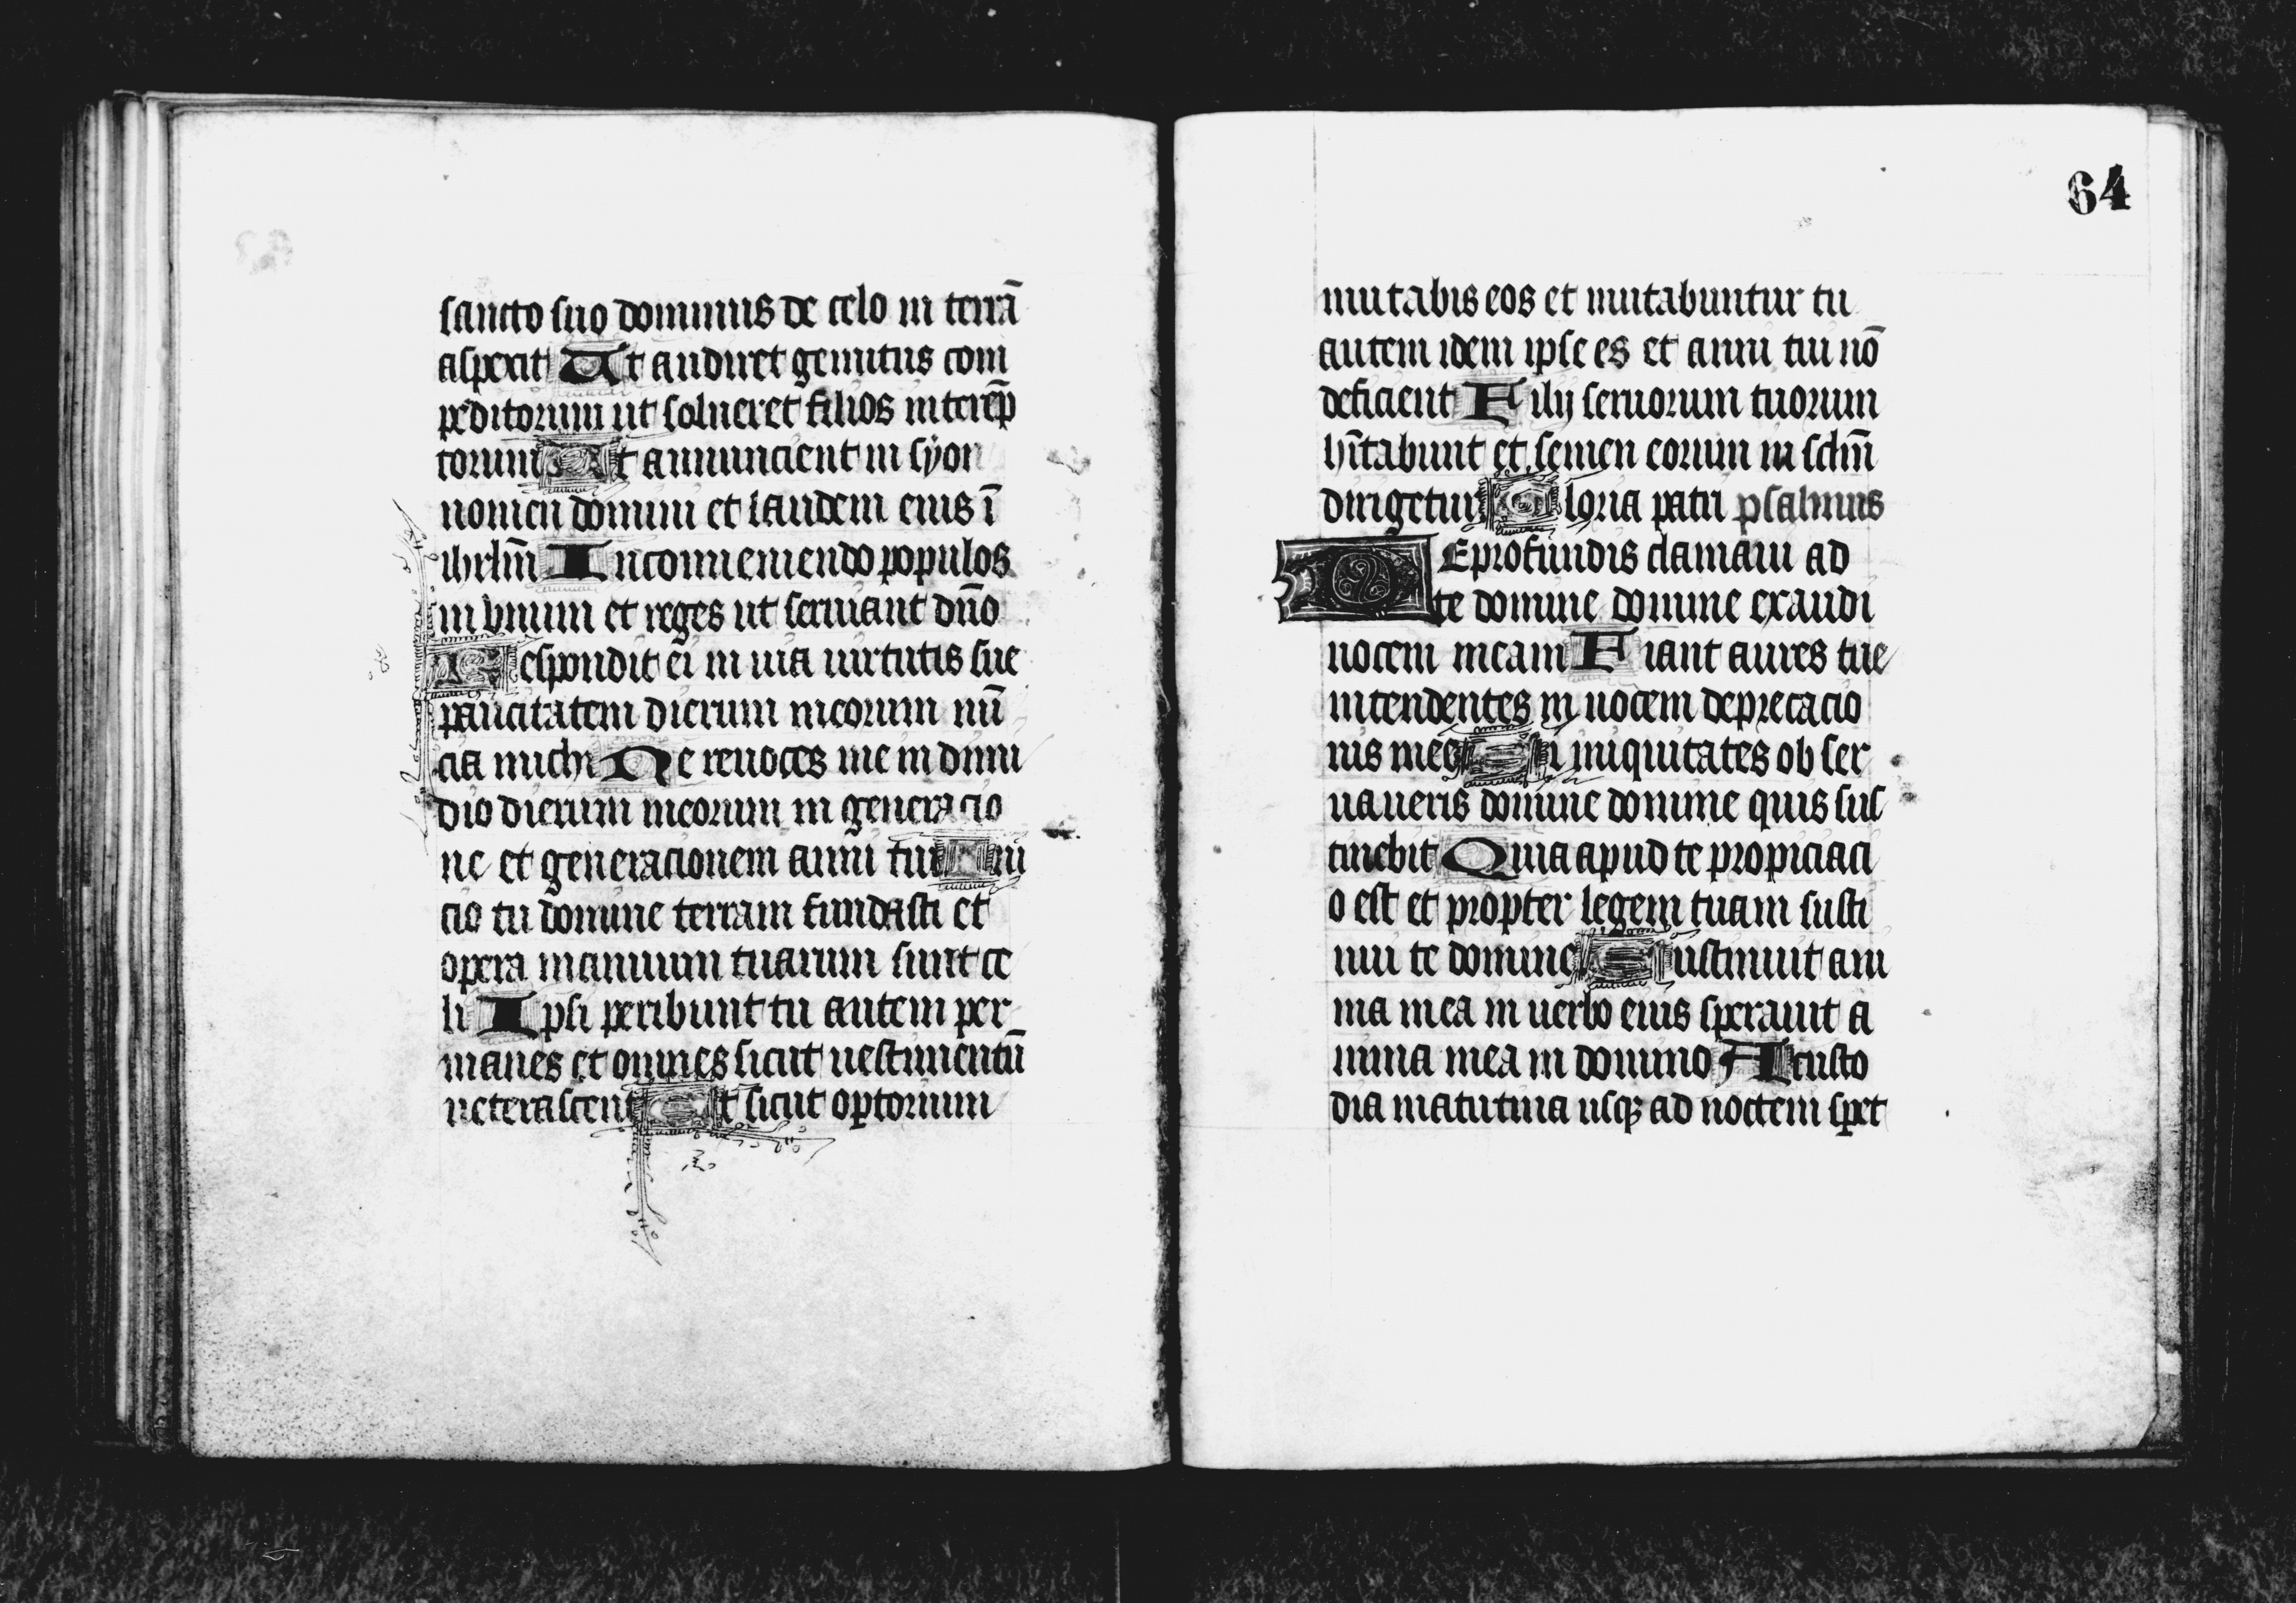 sancto suo dominus de celo in terrā
aspexit Ut audiret gemitus com
peditorum ut solueret filios interēp
torum Ut annuncient in syon
nomen domini et laudem eius ī
ihrl̄m In conueniendo populos
in vnum et reges ut seruiant dn̄o
Respondit ei in uia uirtutis sue
paucitatem dierum meorum nū
cia michi Ne reuoces me in dimi
dio dierum meorum in generacio
ne et generacionem anni tui Ini
cio tu domine terram fundasti et
opera manuum tuarum sunt ce
li Ipsi peribunt tu autem per
manes et omnes sicut uestimentū
ueterascent Et sicut optorium
64
mutabis eos et mutabuntur tu
autem idem ipse es et anni tui nō
deficient Filij seruorum tuorum
hītabunt et semen eorum in sclm̄
dirigetur Gloria patri psalmus
DE profundis clamaui ad
te domine domine exaudi
uocem meam Fiant aures tue
intendentes in uocem deprecacio
nis mee Si iniquitates obser
uaueris domine domine quis sus
tinebit Quia apud te propiciaci
o est et propter legem tuam susti
nui te domine Sustinuit ani
ma mea in uerbo eius sperauit a
nima mea in domino A custo
dia matutina usqꝫ ad noctem spet